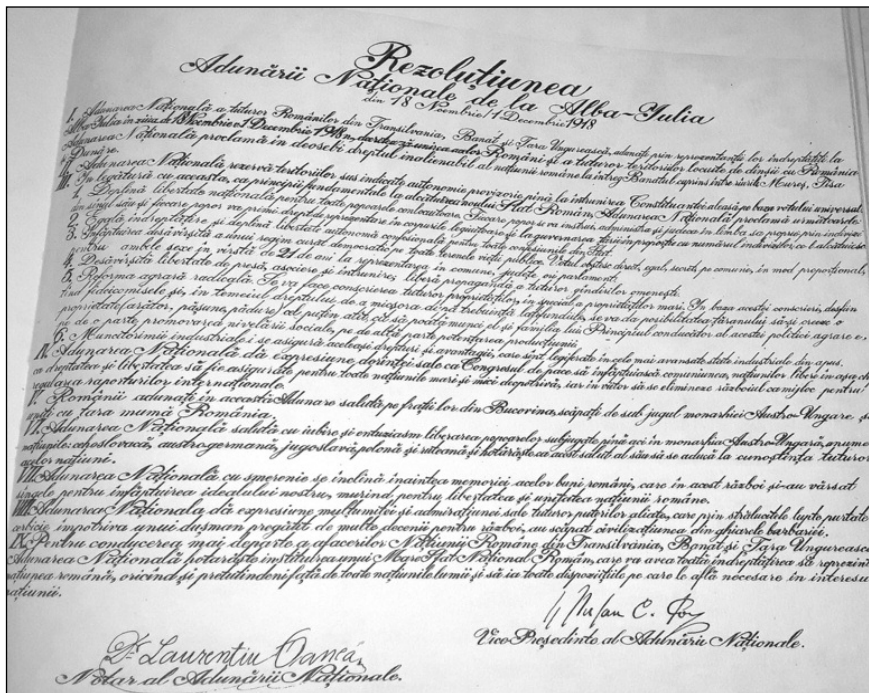 Rezoluțiunea
Adunării Naționale de la Alba-Iulia
din 18 Noembrie/1 Decembrie 1918
I. Adunarea Națională a tuturor Românilor din Transilvania, Banat și Țara Ungurească, adunați prin reprezentanții lor îndreptățiți la
Alba-Iulia în ziua de 18 Noembrie/1 Decembrie 1918, decretează unirea acelor Români și a tuturor teritoriilor locuite de dînșii cu România.
Adunarea Națională proclamă în deosebi dreptul inalienabil al națiunii române la întreg Banatul cuprins între rîurile Mureș, Tisa
și Dunăre.
II. Adunarea Națională rezervă teritoriilor sus indicate autonomie provizorie pînă la întrunirea Constituantei aleasă pe baza votului universal.
III. În legătură cu aceasta, ca principii fundamentale la alcătuirea noului Stat Român, Adunarea Națională proclamă următoarele:
1. Deplină libertate națională pentru toate popoarele conlocuitoare. Fiecare popor se va instrui, administra și judeca în limba sa proprie prin indivizi
din sînul său și fiecare popor va primi drept de reprezentare în corpurile legiuitoare și la guvernarea țării în proporție cu numărul indivizilor ce-l alcătuiesc.
2. Egală îndreptățire și deplină libertate autonomă confesională pentru toate confesiunile din Stat.
3. Înfăptuirea desăvîrșită a unui regim curat democratic pe toate terenele vieții publice. Votul obștesc direct, egal, secret, pe comune, în mod proporțional,
pentru ambele sexe în vîrstă de 21 de ani la reprezentarea în comune, județe ori parlament.
4. Desăvîrșită libertate de presă, asociere și întrunire; liberă propagandă a tuturor gîndirilor omenești.
5. Reforma agrară radicală. Se va face conscrierea tuturor proprietăților, în special a proprietăților mari. În baza acestei conscrieri, desfiin
țînd fideicomisele și, în temeiul dreptului de a micșora după trebuință latifundiile, se va da posibilitatea țăranului să-și creeze o
proprietate (arător, pășune, pădure) cel puțin atît cît să poată munci el și familia lui. Principiul conducător al acestei politici agrare e,
pe de o parte promovarea nivelării sociale, pe de altă parte potențarea producțiunii.
6. Muncitorimii industriale i se asigură aceleași drepturi și avantagii, care sînt legiferate în cele mai avansate state industriale din apus.
IV. Adunarea Națională dă expresiune dorinței sale ca Congresul de pace să înfăptuiască comuniunea națiunilor libere în așa chip
ca dreptatea și libertatea să fie asigurate pentru toate națiunile mari și mici deopotrivă, iar în viitor să se elimineze războiul ca mijloc pentru
regularea raporturilor internaționale.
V. Românii adunați în această Adunare salută pe frații lor din Bucovina, scăpați de sub jugul monarhiei Austro-Ungare și
uniți cu țara mumă România.
VI. Adunarea Națională salută cu iubire și entuziasm liberarea popoarelor subjugate pînă aci în monarhia Austro-Ungară, anume
națiunile: cehoslovacă, austro-germană, jugoslavă, polonă și ruteană și hotărăște ca acest salut al său să se aducă la cunoștința tuturor
acelor națiuni.
VII. Adunarea Națională cu smerenie se înclină înaintea memoriei acelor bravi români, care în acest război și-au vărsat
sîngele pentru înfăptuirea idealului nostru, murind pentru libertatea și unitatea națiunii române.
VIII. Adunarea Națională, dă expresiune mulțumitei și admirațiunei sale tuturor puterilor aliate, care prin strălucitele lupte purtate
cerbicie împotriva unui dușman pregătit de multe decenii pentru război, au scăpat civilizațiunea din ghiarele barbariei.
IX. Pentru conducerea mai departe a afacerilor Națiunii Române din Transilvania, Banat și Țara Ungurească
Adunarea Națională hotărăște instituirea unui Mare Sfat Național Român, care va avea toată îndreptățirea să reprezinte
națiunea română, oricînd și pretutindeni față de toate națiunile lumii și să ia toate dispozițiile pe care le află necesare în interesul
națiunii.
Vice Președinte al Adunării Naționale.
Dr. Laurențiu Oancă,
Notar al Adunării Naționale.